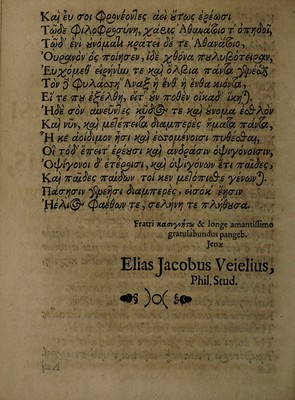 Καὶ ἐυ σοι φρονέοντες ἀεὶ ὅυτως ἐρέωσι
Τῷδε Φιλοφροσύνη, χάρις Ἀθανασίῳ τ' ὀπηδοῖ,
Τῷδ' ἑνὶ ὀυνόμαϊ κρατεῖ δέ τε Ἀθανασίῳ,
Ὀυρανὸν ὃς ποίησεν, ἰδὲ χθόνα πουλυβοτείραν,
Ἐυχόμεθ' εἰρήνην τε καὶ ὄλβια πάντα
Τὸν δὲ Ἄναξ ἢ ἔνθ' ἢ ἔνθα κιόντα,
Εἴ τε που ἐξέλθῃ, εἴτ' ποθεν οἴκαδ' ἵκηται,
Ἠδὲ σὸν κῦδός τε καὶ ὄυνομα ἐσθλὸν
Καὶ νῦν, καὶ μετέπειτα διαμπερὲς ἤματα πάντα,
Ἥ κε ἀοίδιμον ᾖσι καὶ ἐσσομένοισι πυθέσθαι,
Οἱ τόδ' ἔπειτ' ἐρέουσι καὶ ἀνδράσιν ὀψιγόνοισιν,
Ὀψίγονοι δ' ἑτέροισι, καὶ ὀψιγόνων ἔτι παῖδες,
Καὶ παῖδες παίδων τοί κεν μετόπισθε γένωνται.
Πάσῃσιν γενεῇσι διαμπερὲς, εἰσόκ' ἔησιν
Ἠέλιός φαέθων τε, σελήνη τε πλήθουσα.
Fratri κασιγνήτῳ & longe amantissimo
gratulabundus pangeb.
Jenæ
Elias Jacobus Veielius,
Phil. Stud.